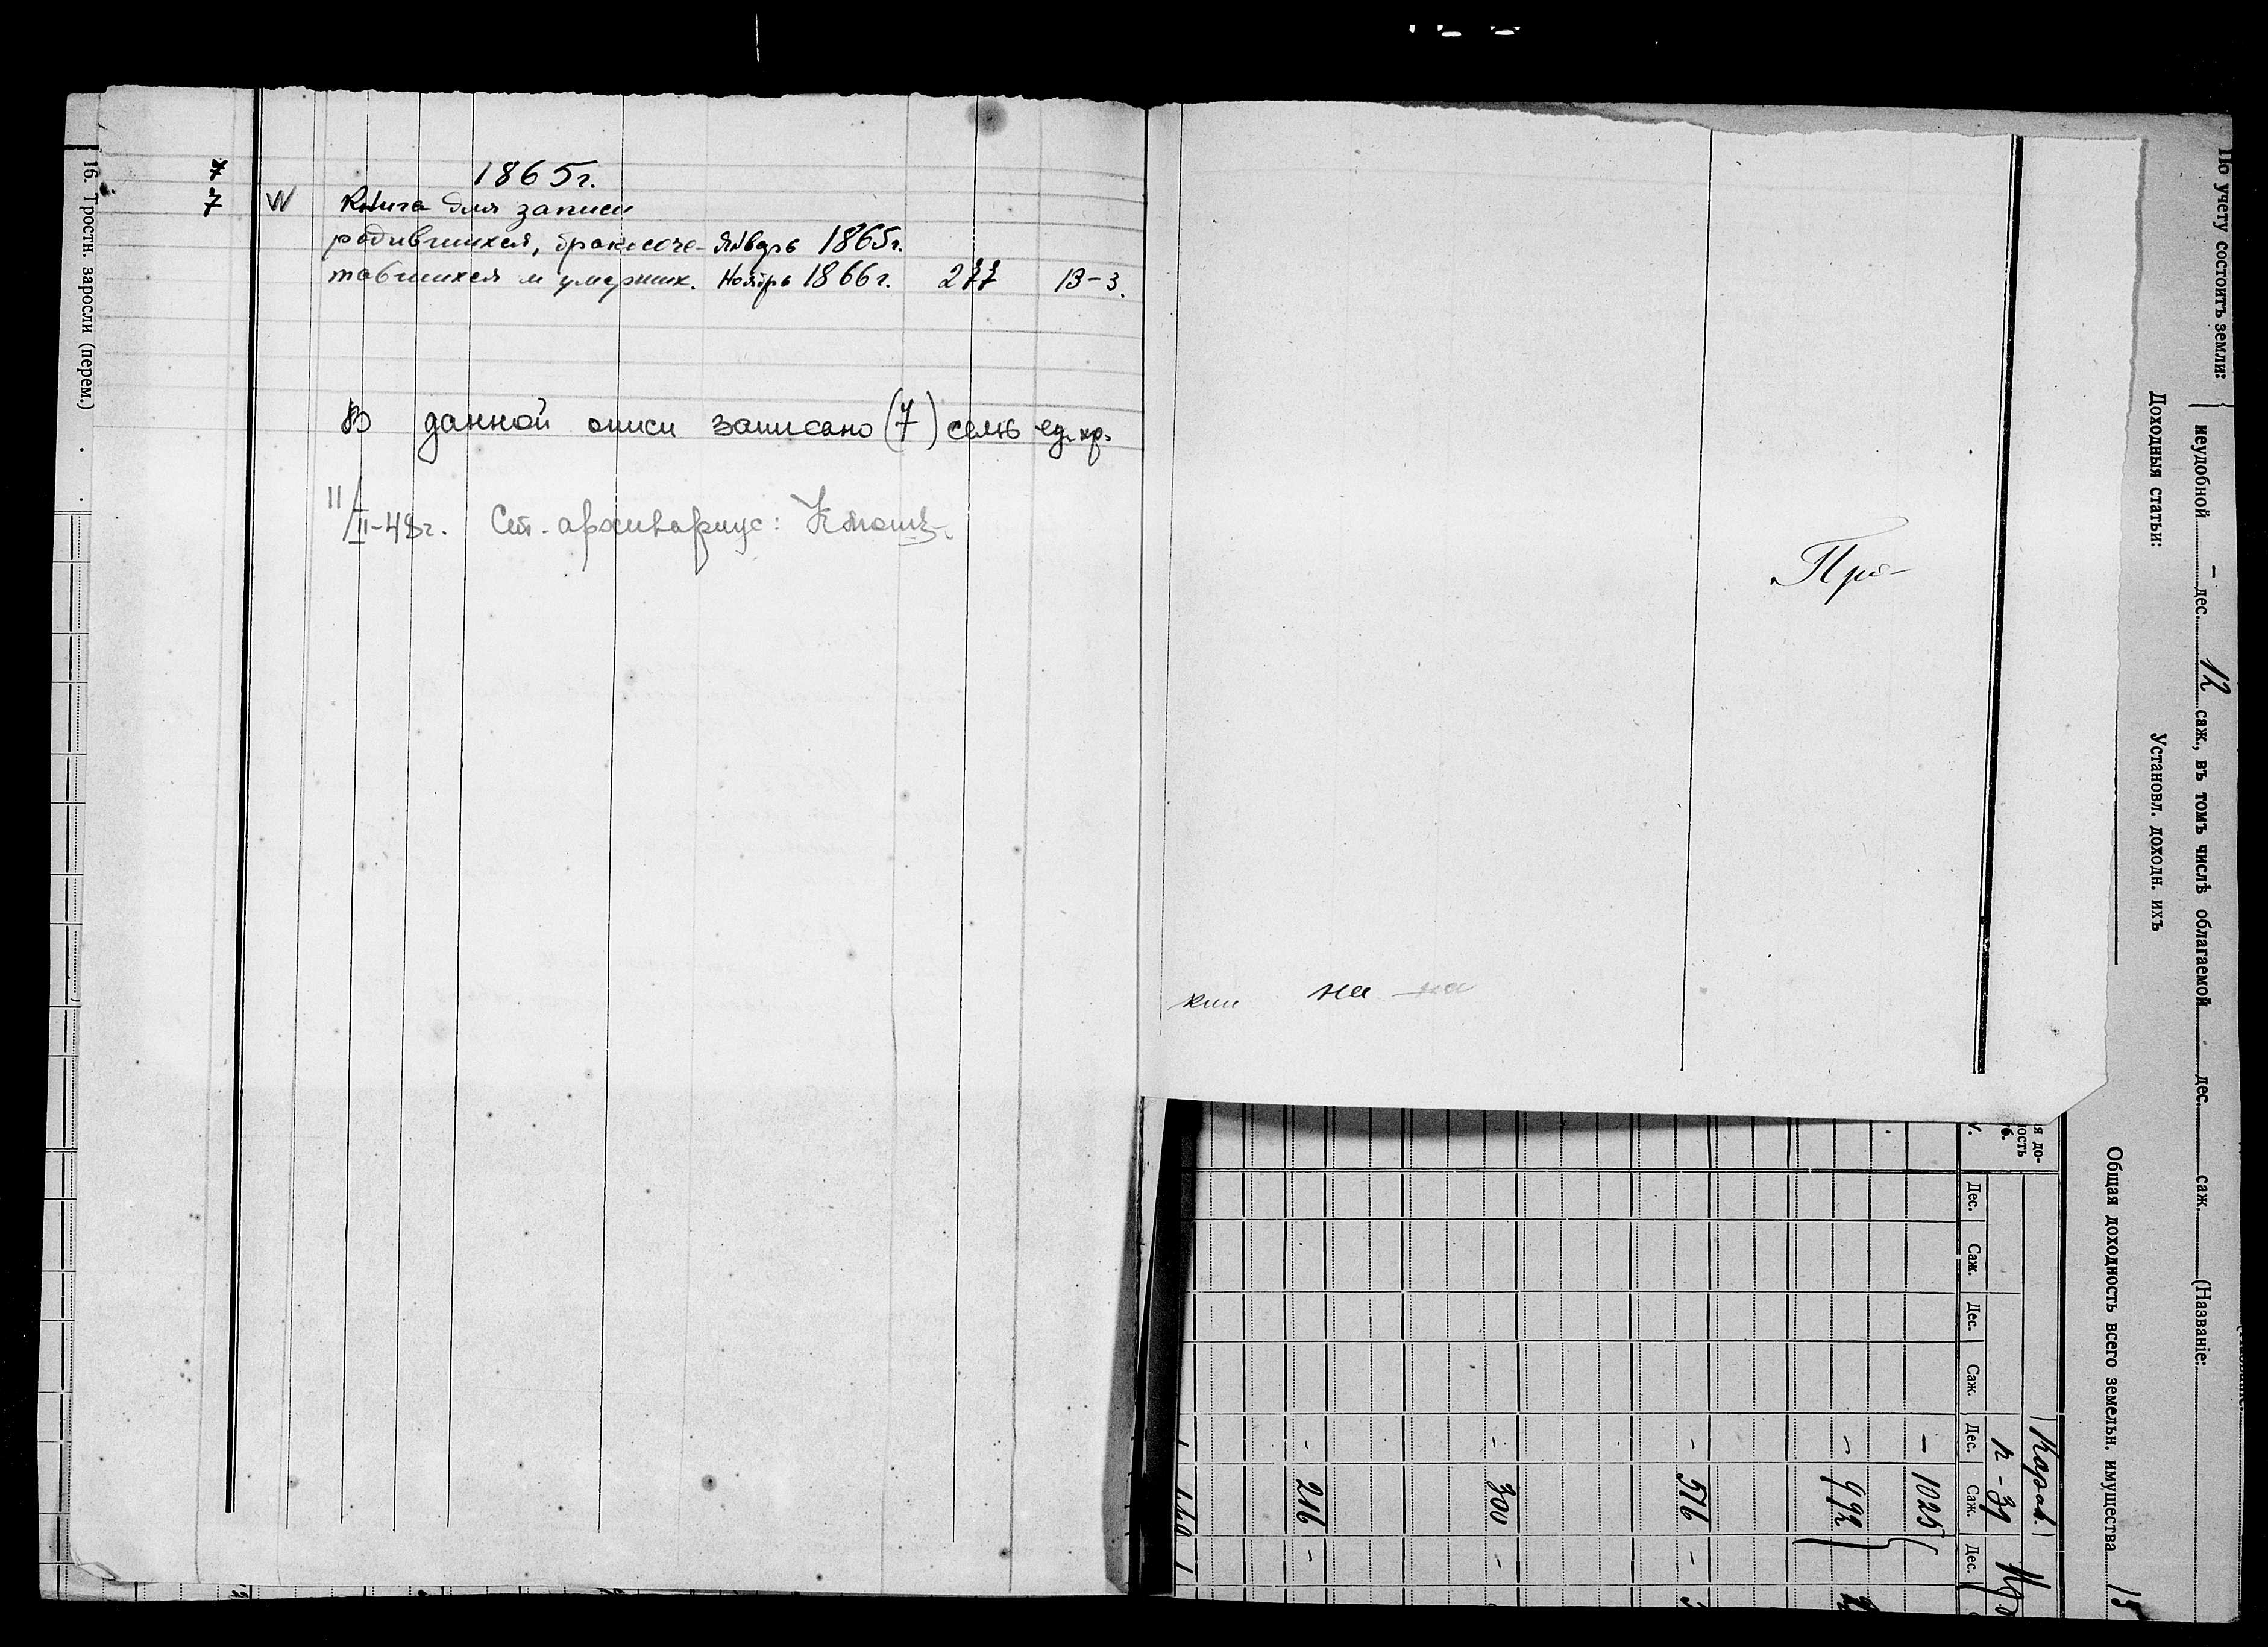 16. Тростн. заросли (перем.)
1865г.
7 W Книга для записи
родившихся, бракосоче- Январь 1865г.
тавшихся и умерших. Ноябрь 1866г. 277 В-3.
В данной описи записано (7) семь ед. хр.
11/II-48г. Ст. архивариус:
Про-
кии на на
По учету состоитъ земли:
неудобной – дес. 12 саж., въ томъ числѣ облагаемой дес. саж. (Названіе:
Доходныя статьи: Установл. доходн. ихъ
Общая доходность всего земельн. имущества 15
Дес. Саж. Дес. Саж. Дес. Саж. Дес.
– 1025
– 992
– 516 –
– 300 –
– 216 –